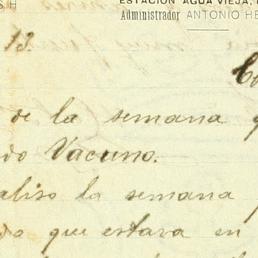 ESTACIÓN AGUA VIEJA,
Administrador ANTONIO HE
13.
de la semana
do Vacuno.
la semana
da que estava en